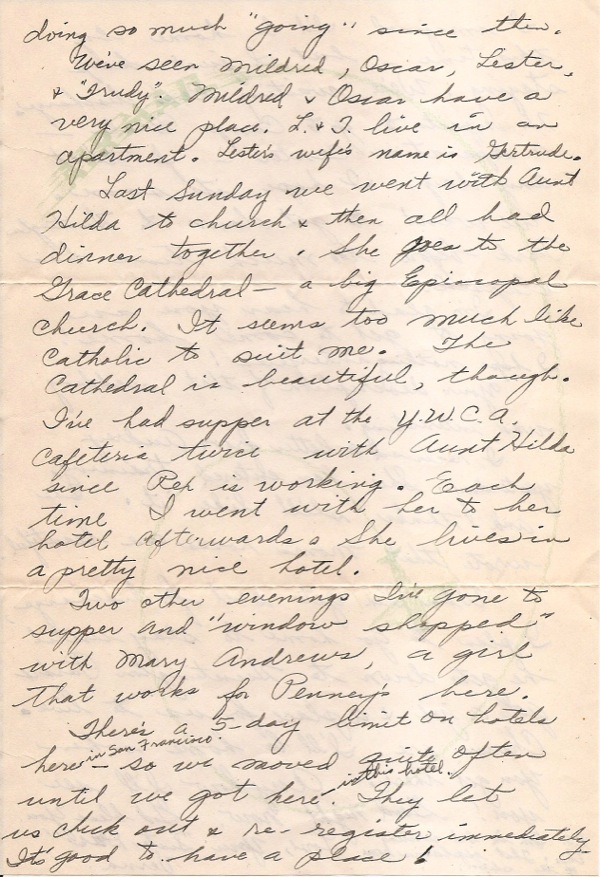 doing so much "going" since then.
We've seen Mildred, Oscar, Lester,
& "Trudy". Mildred & Oscar have a
very nice place. L. & T. live in an
apartment. Lester's wife's name is Gertrude.
Last Sunday we went with Aunt
Hilda to church & then all had
dinner together. She goes to the
Grace Cathedral — a big Episcopal
church. It seems too much like
Catholic to suit me. The
Cathedral is beautiful, though.
I've had supper at the Y.W.C.A.
Cafeteria twice with Aunt Hilda
since Pep is working. Each
time I went with her to her
hotel afterwards. She lives in
a pretty nice hotel.
Two other evenings I've gone to
supper and "window shopped"
with Mary Andrews, a girl
that works for Penney's here.
There's a 5-day limit on hotels
in San Francisco.
here — so we moved quite often
in this hotel.
until we got here. They let
us check out & re-register immediately
It's good to have a place!